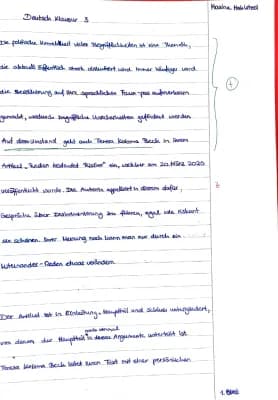 Deutsch Klausur 3
Die politische Korrektheit vieler Begrifflichkeiten ist eine Thematik,
die aktuell öffentlich stark diskutiert wird. Immer häufiger wird
die Bevölkerung auf ihre sprachlichen aufmerksam
gemacht, wodurch begriffliche Unsicherheiten gefördert werden
Auf diesen geht auch Teresa Koloma Beck in ihrem
Artikel „Reden bedeutet Risiko“ ein, welcher am 20. März 2020
veröffentlicht wurde. Die Autorin appelliert in diesem dafür,
Gespräche über Diskriminierung zu führen, egal wie riskant
sie schienen. Ihrer Meinung nach kann man nur durch ein
Miteinander-Reden etwas verändern.
Der Artikel ist in Einleitung, Hauptteil und Schluss untergliedert,
von denen der Hauptteil in Argumente unterteilt ist
Teresa Koloma Beck leitet ihren Text mit einer persönlichen
+
1. Blatt